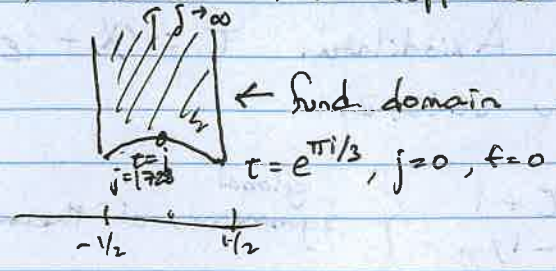 j → ∞
← fund domain
τ = i
j = 1728
τ = e^{πi/3}, j = 0, f = 0
-1/2
1/2